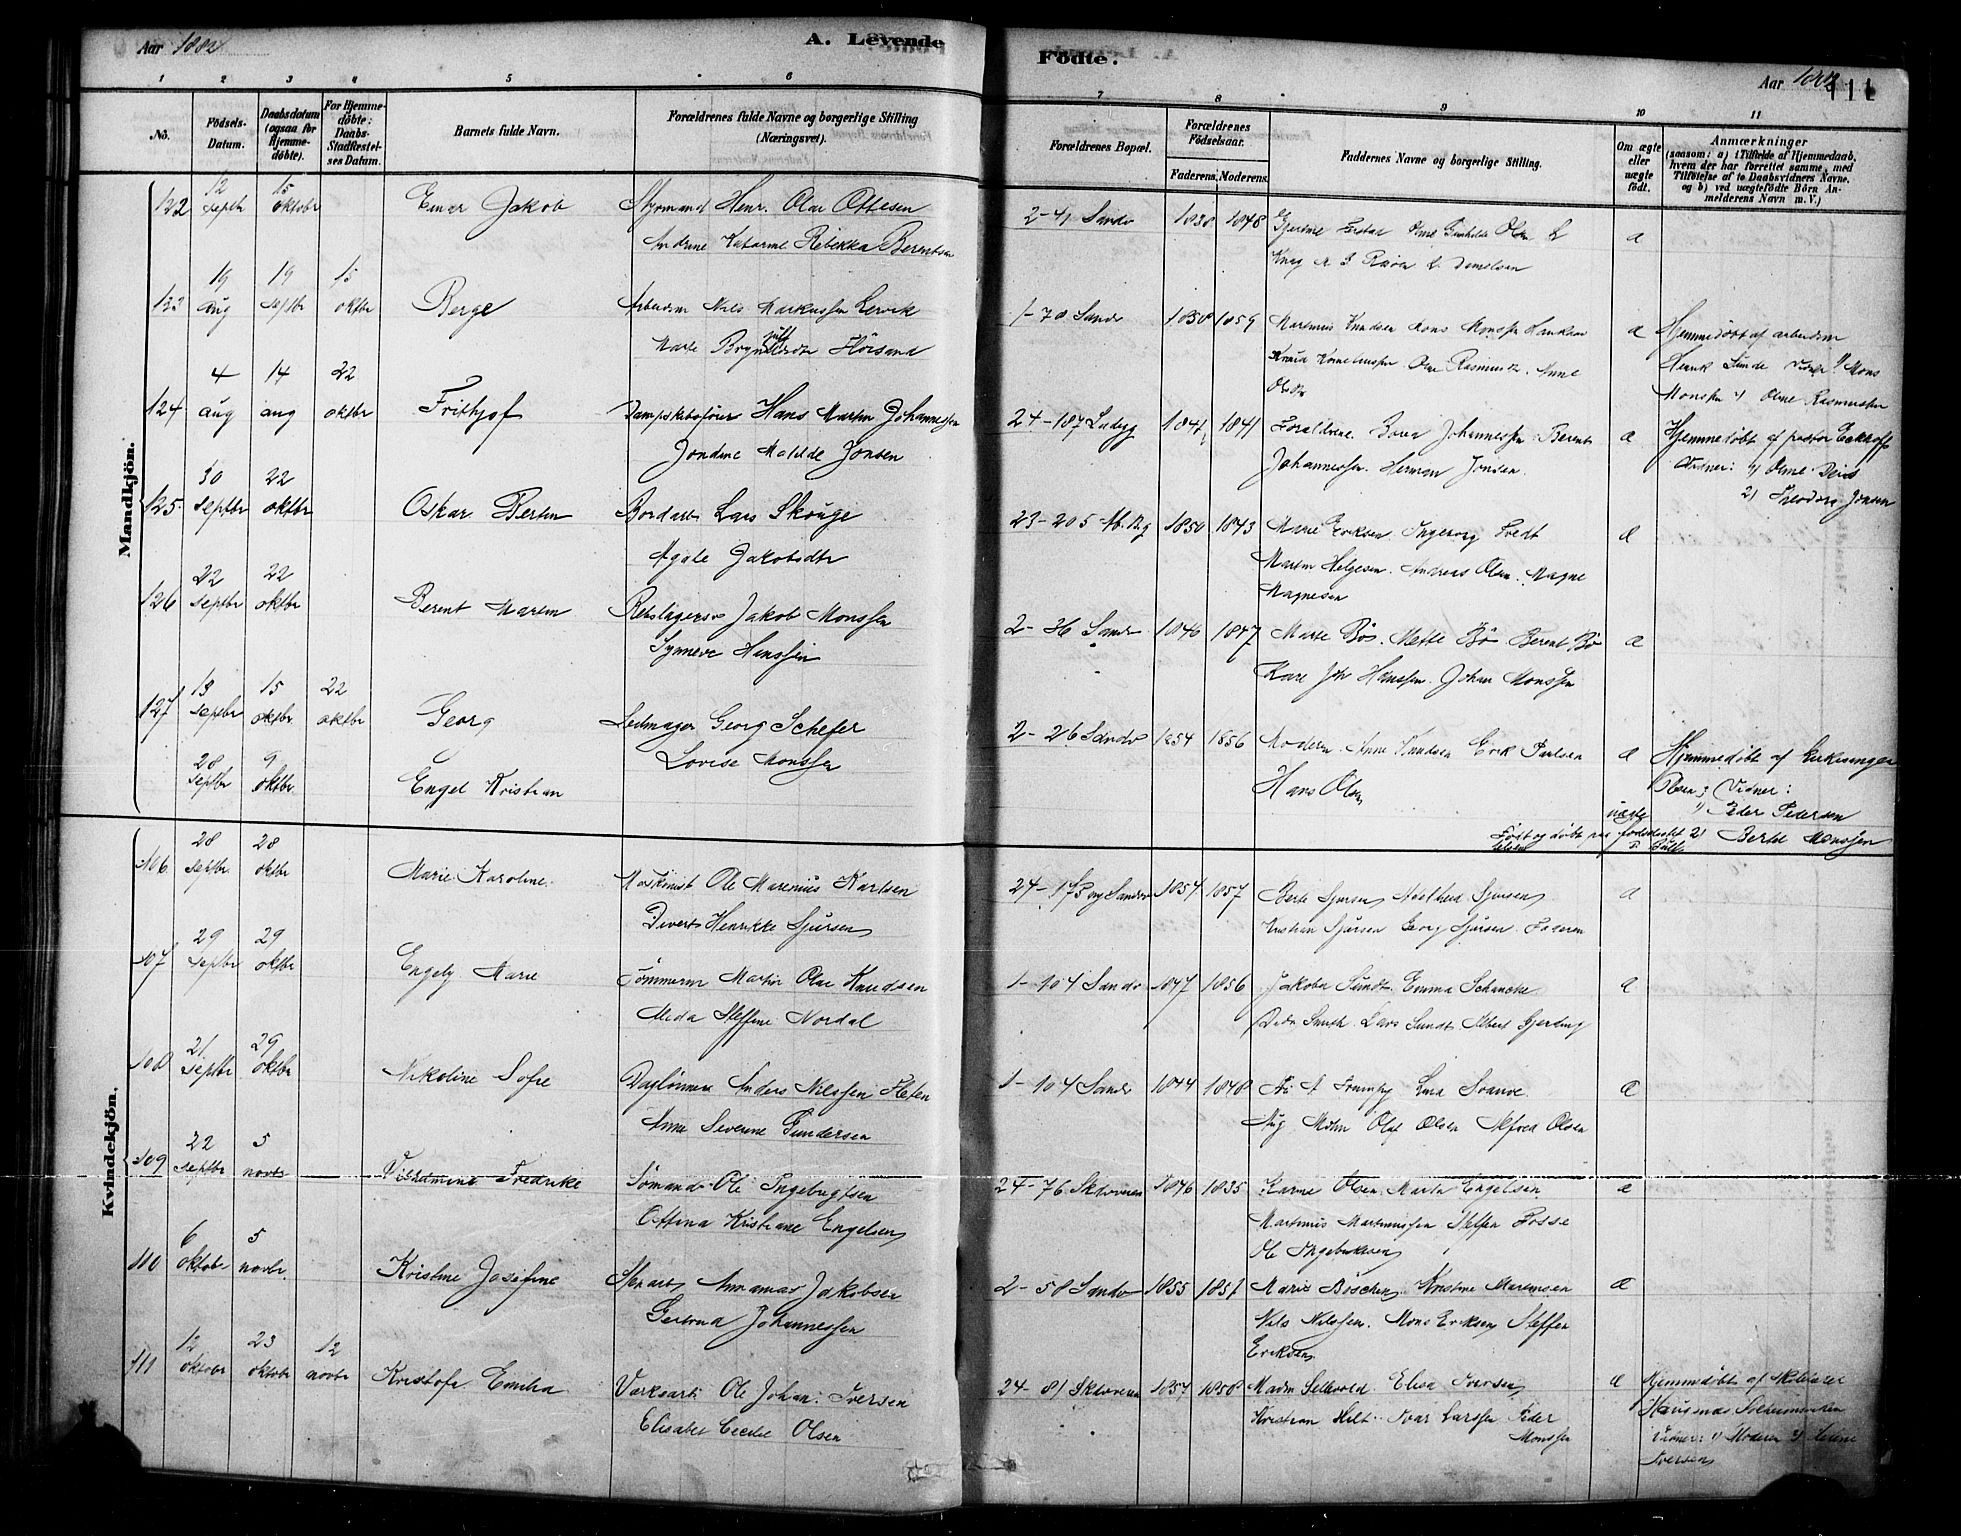 Aar 1882
A. Levende
Födte.
Aar 1882
111
1 2 3 4 5 6 7 8 9 10 11
No.
Födsels-Datum.
Daabsdatum (ogsaa for Hjemme-döbte).
For Hjemme-döbte: Daabs-Stadfæstel-ses Datum.
Barnets fulde Navn.
Forældrenes fulde Navne og borgerlige Stilling (Næringsvei).
Forældrenes Bopæl.
Forældrenes Födselsaar.
Faderens. Moderens.
Faddernes Navne og borgerlige Stilling.
Om ægte eller uægte födt.
Anmærkninger
(saasom: a) i Tilfælde af Hjemmedaab, hvem der har forrettet samme, med Tilföielse af to Daabsvidners Navne, og b) ved uægtefödte Börn Anmelderens Navn m. V.)
Mandkjön.
122 12 septbr 15 oktobr Einar Jakob Styrmand Henr. Olai Ottesen
Andrine Katarine Rebekka Berentsen
2-41 Sandv 1838 1848
æ
123 19 aug 19 septbr 15 oktbr Berge Arbeidsm Nils Markussen Lervik
Marte Brynildsdtr Flörsand
1-70 Sandv 1850 1859 Martinus Knudsen Mons Monssen
Knud Kornelius Oline Rasmusdtr. Anne
Olsdtr
æ Hjemmedöbt af arbeidsm
Henrik Vidner 1) Mons
Monssen 2) Oline Rasmusdtr
124 4 aug 14 aug 22 oktbr Frithjof Dampskibsförer Hans Martin Johannessen
Jondine Matilde Jonsen
24-187 Ladegg 1841 1841 Foraldrene. Johannessen Berent
Johannessen. Herman Jonsen.
æ Hjemmedöbt af pastor Eckhoff
Vidner: 1) Oline
2) Teodora Jonsen
125 30 septbr 22 oktbr Oskar Bertin Bordarb Lars Skouge
Agate Jakobsdtr
23-205 1850 1843 Marie Eriksen Ingeborg Tvedt
Martin Helgesen. Andreas Olsen. Magne
Magnesen
æ
126 22 septbr 22 oktbr Berent Martin Rebslagersv Jakob Monssen
Synneve Hanssen
2-36 Sandv 1846 1847 Marte Bö. Mette Bö Berent Bö
Kare Joh Hanssen. Johan Monssen
æ
127 13 septbr 15 oktbr 22 oktbr Georg Leilmager Georg Schefer
Lovise Monssen
2-26 Sandv 1854 1856 Modern. Anne Knudsen Erik Paulsen
Hans Olsen
æ Hjemmedöbt af kirkesanger
Olsen; Vidner:
1) Peder Pedersen
2) Berthe Monssen
28 septbr 9 oktbr Engel Kristian
uægte
Kvindekjön.
106 28 septbr 28 oktbr Marie Karoline. Maskinist Ole Marenius Karlsen
Divert Henrikke Sjursen
24-175 og Sandv 1854 1857 Berte Sjursen Adelheid Sjursen
Kristian Sjursen Georg Sjursen. Faderen
æ
107 29 septbr 29 oktbr Engely Marie Tömmerm Martin Olai Knudsen
Alida Steffine Nordal
1-104 Sandv 1847 1856 Jakoba Sundt. Emma Schancke
Smith. Lars Sundt. Albert Gjerding
æ
108 21 septbr 29 oktbr Nikoline Sofie Daglönner Anders Nilssen Fleten
Anna Severine Gundersen
1-104 Sandv 1844 1848
Aug. Möhn Olaf Olsen Alfred Olsen
æ
109 22 septbr 5 novbr Vilhelmine Fredrike Sömand Ole Ingebrigtsen
Ottina Kristiane Engelsen
24-76 Skuteven 1846 1835 Karine Olsen. Marta Engelsen
Martinus Martinussen Steffen Fosse
Ole Ingebriktsen
æ
110 6 oktobr 5 novbr. Kristine Josefine Stenarb Annanias Jakobsen
Gertrud Johannessen
2-58 Sandv 1855 1857 Marie Böschen. Kristine Martinsen
Nils Nilssen. Mons Eriksen Steffen
Eriksen
æ
111 12 oktobr 23 oktobr 12 novbr Kristofa Emilia Værksarb Ole Johan: Iversen
Elisabet Cecilie Olsen
24-81 Skuteven 1857 1858 Elisa Iversen
Kristian Hilt Ivar Larssen Peder
Monssen
æ Hjemmedöbt af
Vidner: 1) Moderen 2)
Iversen